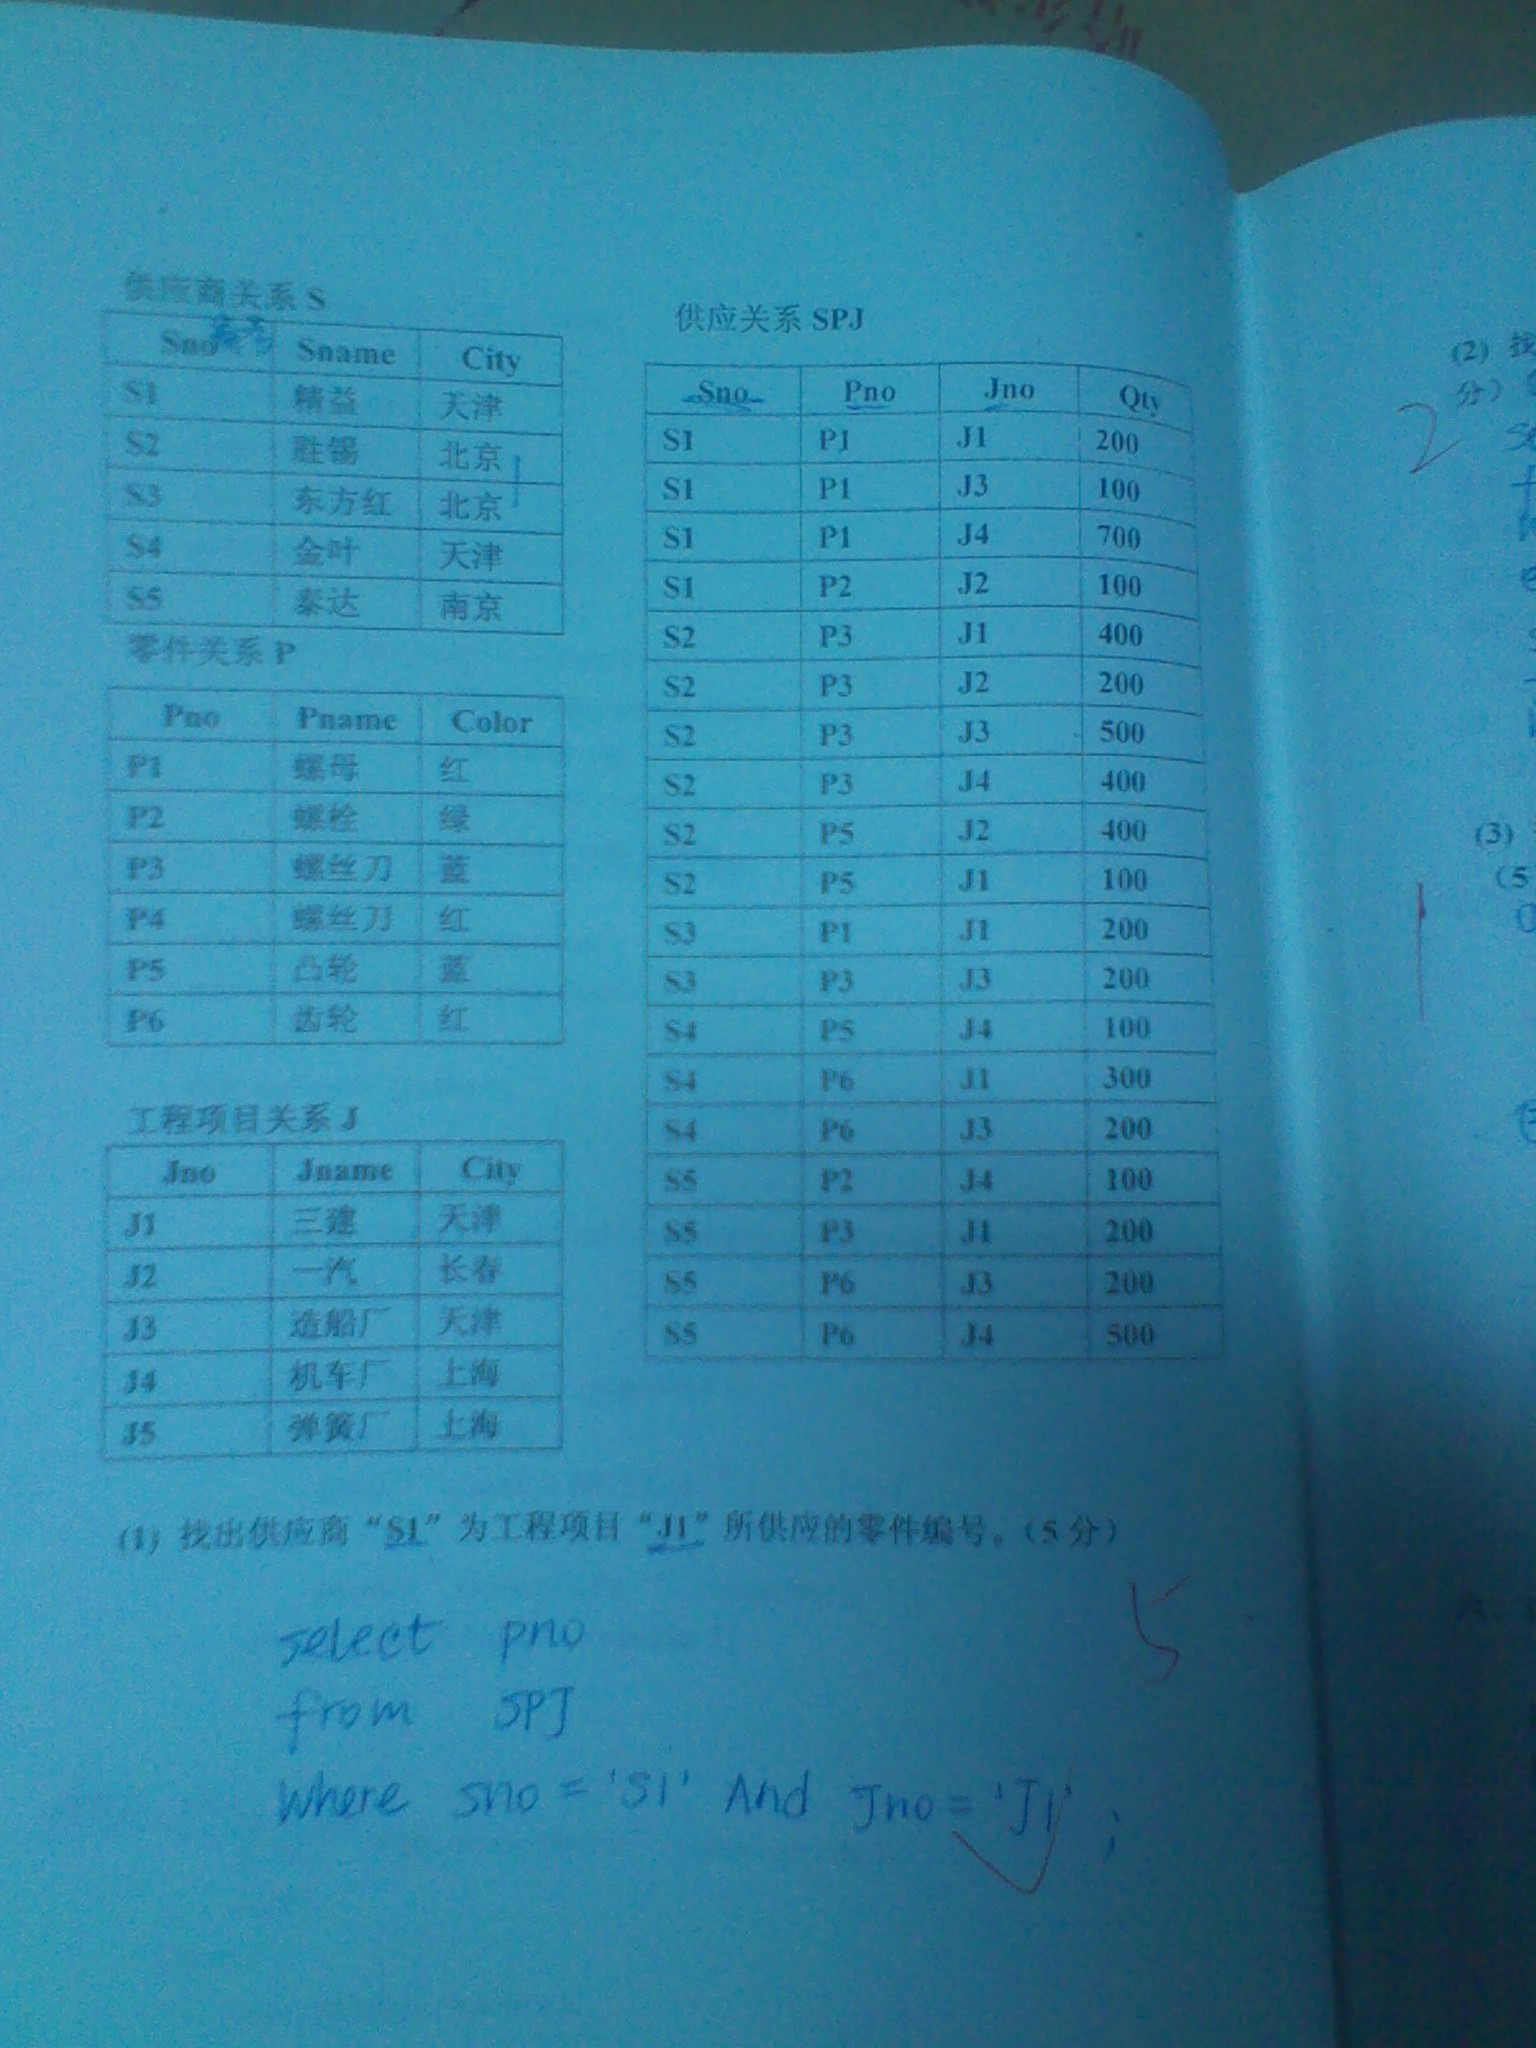 供应商关系 S
Sno Sname City
S1 精益 天津
S2 胜锡 北京
S3 东方红 北京
S4 金叶 天津
S5 泰达 南京
零件关系 P
Pno Pname Color
P1 螺母 红
P2 螺栓 绿
P3 螺丝刀 蓝
P4 螺丝刀 红
P5 凸轮 蓝
P6 齿轮 红
工程项目关系 J
Jno Jname City
J1 三建 天津
J2 一汽 长春
J3 造船厂 天津
J4 机车厂 上海
J5 弹簧厂 上海
供应关系 SPJ
Sno Pno Jno Qty
S1 P1 J1 200
S1 P1 J3 100
S1 P1 J4 700
S1 P2 J2 100
S2 P3 J1 400
S2 P3 J2 200
S2 P3 J3 500
S2 P3 J4 400
S2 P5 J2 400
S2 P5 J1 100
S3 P1 J1 200
S3 P3 J3 200
S4 P5 J4 100
S4 P6 J1 300
S4 P6 J3 200
S5 P2 J4 100
S5 P3 J1 200
S5 P6 J3 200
S5 P6 J4 500
(1) 找出供应商“S1”为工程项目“J1”所供应的零件编号。（5 分）
select pno
from SPJ
where sno = 'S1' And Jno = 'J1' ;
5
(2) 找
分）
2
(3)
（5